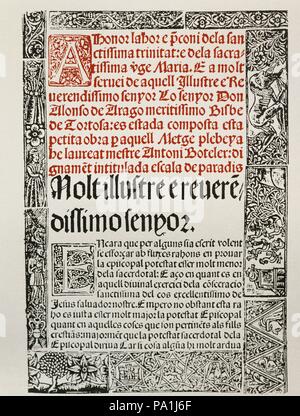 A honor lahor e p̄coni dela san
ctissima trinitat: e dela sacra
tissima v̄ge Maria. E a molt
seruei de aquell Illustre e Re
uerendissimo senyor Lo senyor Don
Alonso de Arago meritissimo Bisbe
de Tortosa: es estada composta esta
petita obra p̱ aquell Metge plebeya
he laureat mestre Antoni Boteler: di
gnamēt intitulada escala de paradis
Molt illustre e reuerē
dissimo senyor.
ENcara que per alguns sia escrit volent
se esforçar ab fictes rahons en prouar
la episcopal potestat esser molt menor
dela sacerdotal: E aço en quant es en
aquell diuinal exercici dela cōsecracio
sanctissima del cos excellentissimo de
Jesus saluador nostre. Empero no obstant esta ra
ho es iusta esser molt major la potestat Episcopal
quant en aquelles coses que son pertinēts als fills
crestiās: majormēt que la potestat sacerdotal dela
Episcopal deriua Lar si cosa algūa hi molt ardua
alamy
PA1J6F